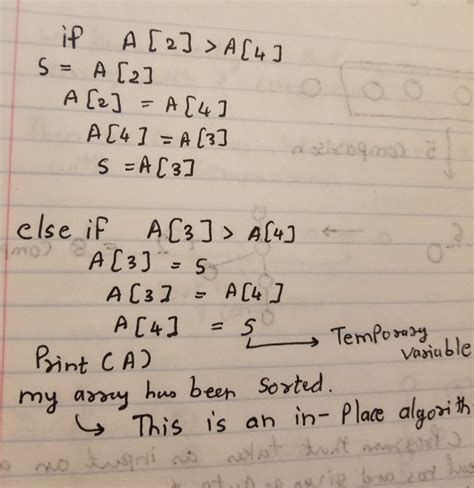 if A[2] > A[4]
S = A[2]
A[2] = A[4]
A[4] = A[3]
S = A[3]
else if A[3] > A[4]
A[3] = S
A[3] = A[4]
A[4] = S → Temporary
variable
Print (A)
my array has been sorted.
↳ This is an in-Place algorith